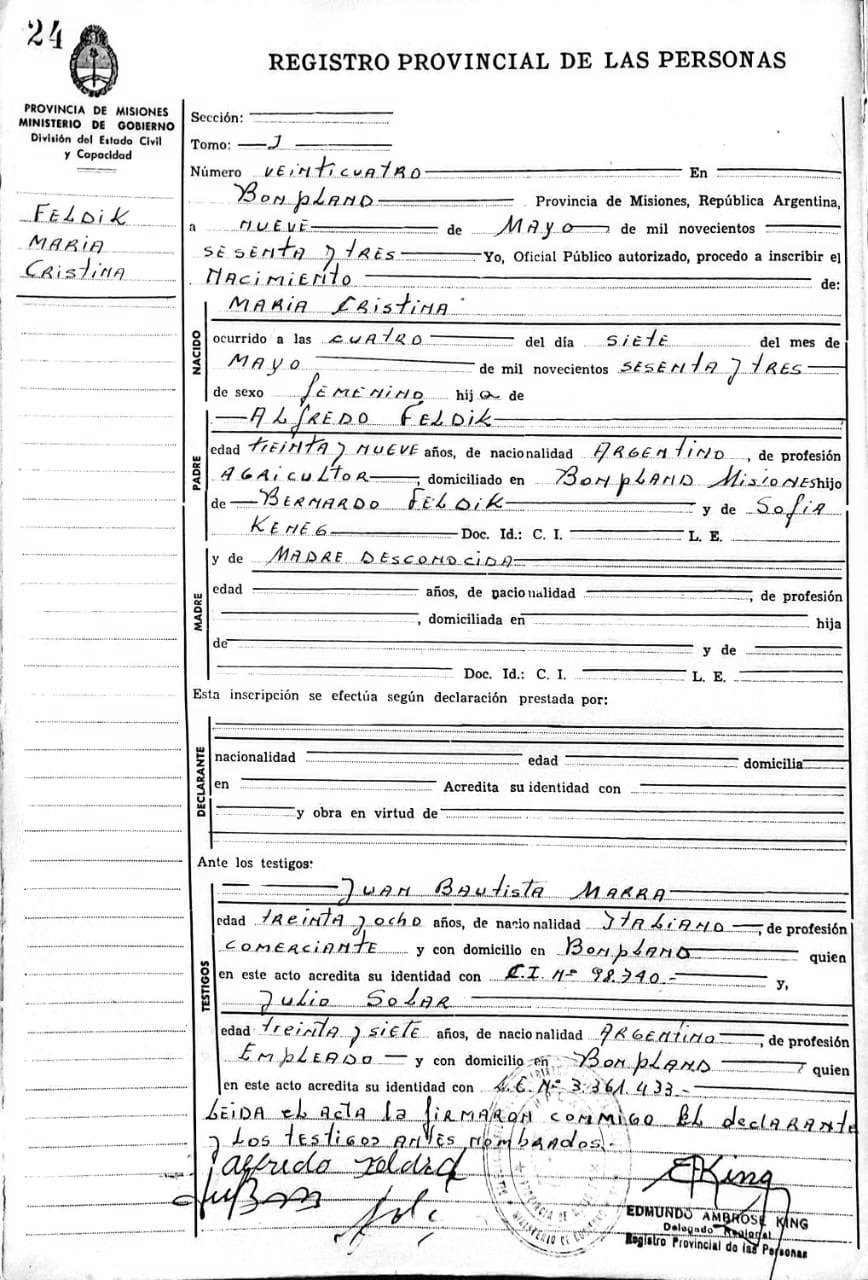 24
REGISTRO PROVINCIAL DE LAS PERSONAS
PROVINCIA DE MISIONES
MINISTERIO DE GOBIERNO
División del Estado Civil
y Capacidad
FELDIK
MARIA
CRISTINA
Sección:
Tomo: I
Número VEINTICUATRO En
BONPLAND Provincia de Misiones, República Argentina,
a NUEVE de MAYO de mil novecientos
SESENTA y TRES Yo, Oficial Público autorizado, procedo a inscribir el
NACIMIENTO de:
NACIDO
MARIA CRISTINA
ocurrido a las CUATRO del día SIETE del mes de
MAYO de mil novecientos SESENTA y TRES
de sexo FEMENINO hija de
PADRE
ALFREDO FELDIK
edad TREINTA y NUEVE años, de nacionalidad ARGENTINO, de profesión
AGRICULTOR, domiciliado en BONPLAND MISIONES hijo
de BERNARDO FELDIK y de SOFIA
KENEG Doc. Id.: C. I. L. E.
MADRE
y de MADRE DESCONOCIDA
edad años, de nacionalidad , de profesión
, domiciliada en hija
de y de
Doc. Id.: C. I. L. E.
Esta inscripción se efectúa según declaración prestada por:
DECLARANTE
nacionalidad edad domicilia
en Acredita su identidad con
y obra en virtud de
Ante los testigos:
TESTIGOS
JUAN BAUTISTA MARRA
edad TREINTA y OCHO años, de nacionalidad ITALIANO, de profesión
COMERCIANTE y con domicilio en BONPLAND quien
en este acto acredita su identidad con C.I. Nº 98.740.- y,
JULIO SOLAR
edad TREINTA y SIETE años, de nacionalidad ARGENTINO, de profesión
EMPLEADO y con domicilio en BONPLAND quien
en este acto acredita su identidad con L.E. Nº 3.361.433.-
LEIDA el ACTA la FIRMARON CONMIGO EL declarante
y LOS TESTIGOS ANTES NOMBRADOS.-
Alfredo Feldik
EKing
EDMUNDO AMBROSE KING
Delegado Regional
Registro Provincial de las Personas